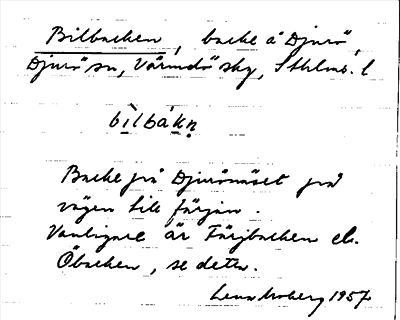 Bilbacken, backe å Djurö,
Djurö sn, Värmdö sky, Sthlms. l
bìlbákn̥
Backe på Djurönäset på
vägen till färjan.
Vanligare är Färjbacken el.
Öbacken, se detta.
Lena Moberg 1957